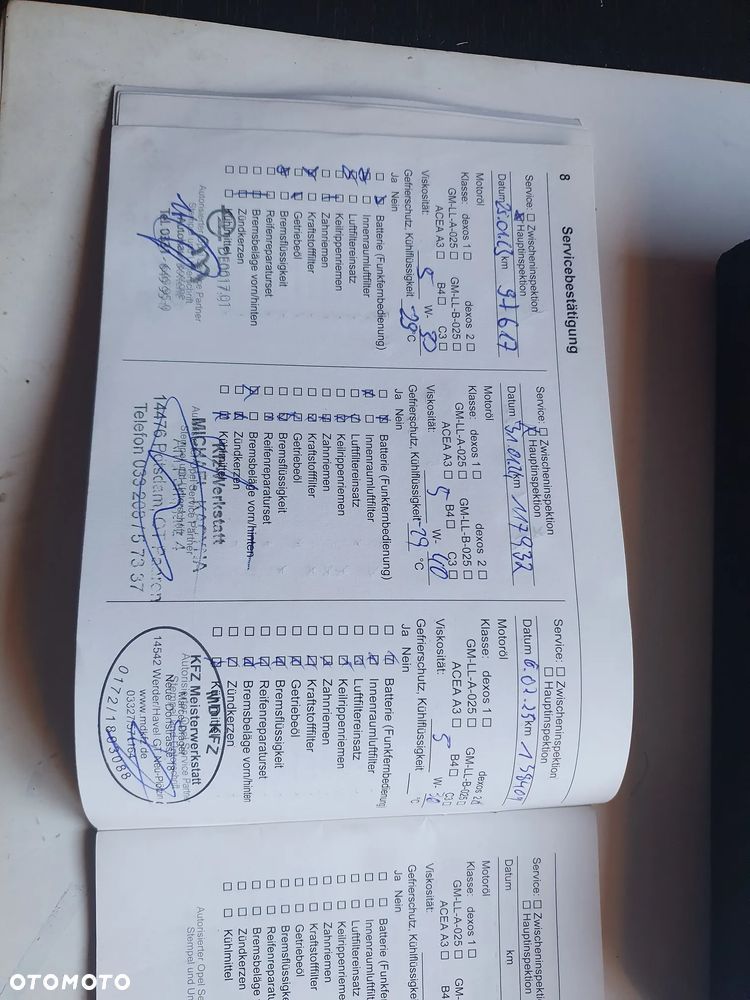 8
Servicebestätigung
Service: ☐ Zwischeninspektion
☒ Hauptinspektion
Datum km 97617
Motoröl
Klasse: dexos 1 ☐ dexos 2 ☐
GM-LL-A-025 ☐ GM-LL-B-025 ☐
ACEA A3 ☐ B4 ☐ C3 ☐
Viskosität: 5 W- 30
Gefrierschutz, Kühlflüssigkeit -29 °C
Ja Nein
Batterie (Funkfernbedienung)
Innenraumluftfilter
Luftfiltereinsatz
Keilrippenriemen
Zahnriemen
Kraftstofffilter
Getriebeöl
Bremsflüssigkeit
Reifenreparaturset
Bremsbeläge vorn/hinten
Zündkerzen
Service: ☐ Zwischeninspektion
☒ Hauptinspektion
Datum km 117932
Motoröl
Klasse: dexos 1 ☐ dexos 2 ☐
GM-LL-A-025 ☐ GM-LL-B-025 ☐
ACEA A3 ☐ B4 ☐ C3 ☐
Viskosität: 5 W- 40
Gefrierschutz, Kühlflüssigkeit °C
Ja Nein
Batterie (Funkfernbedienung)
Innenraumluftfilter
Luftfiltereinsatz
Keilrippenriemen
Zahnriemen
Kraftstofffilter
Getriebeöl
Bremsflüssigkeit
Reifenreparaturset
Bremsbeläge vorn/hinten
Zündkerzen
Kühlmittel
Kfz-Werkstatt
14476 Potsdam
Telefon 033 205 75 73 37
Service: ☐ Zwischeninspektion
☐ Hauptinspektion
Datum 6.02.25 km 138409
Motoröl
Klasse: dexos 1 ☐ dexos 2
GM-LL-A-025 ☐ GM-LL-B-025 ☐
ACEA A3 ☐ B4 ☐ C3
Viskosität: 5 W-
Gefrierschutz, Kühlflüssigkeit °C
Ja Nein
Batterie (Funkfernbedienung)
Innenraumluftfilter
Luftfiltereinsatz
Keilrippenriemen
Zahnriemen
Kraftstofffilter
Getriebeöl
Bremsflüssigkeit
Reifenreparaturset
Bremsbeläge vorn/hinten
Zündkerzen
Kühlmittel
MD KFZ
KFZ Meisterwerkstatt
14542 Werder/Havel
www.mdkfz.de
Service: ☐ Zwischeninspektion
☐ Hauptinspektion
Datum km
Motoröl
Klasse: dexos 1 ☐
GM-LL-A-025 ☐ GM-LL
ACEA A3 ☐ B4
Viskosität:
Gefrierschutz, Kühlflüssigkeit
Ja Nein
Batterie (Funkfernbedie
Innenraumluftfilter
Luftfiltereinsatz
Keilrippenriemen
Zahnriemen
Kraftstofffilter
Getriebeöl
Bremsflüssigkeit
Reifenreparaturset
Bremsbeläge
Zündkerzen
Kühlmittel
Autorisierter Opel Se
Stempel und Un
OTOMOTO